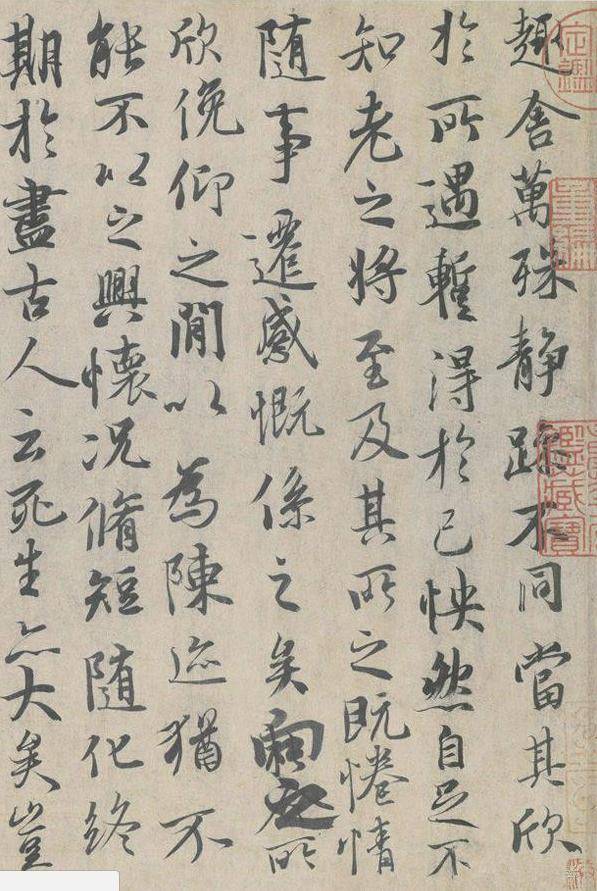 趣舍萬殊静躁不同當其欣
於所遇蹔得於己怏然自足不
知老之將至及其所之既惓情
随事遷感慨係之矣向之所
欣俛仰之閒以為陳迹猶不
能不以之興懷况脩短随化終
期於盡古人云死生亦大矣豈